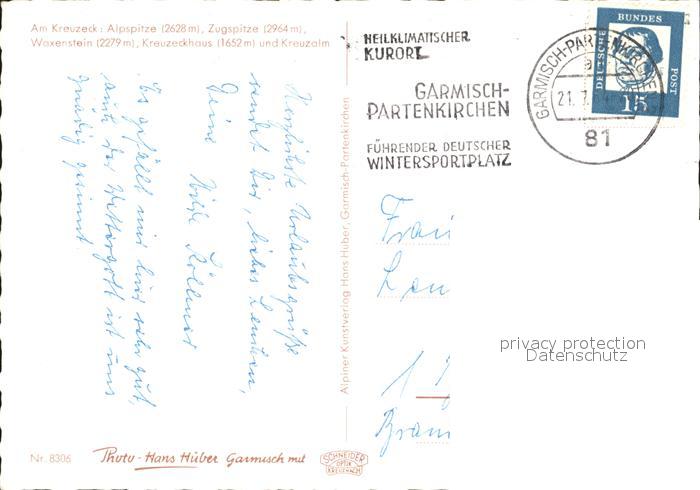 Am Kreuzeck: Alpspitze (2628 m), Zugspitze (2964 m),
Waxenstein (2279 m), Kreuzeckhaus (1652 m) und Kreuzalm
HEILKLIMATISCHER
KURORT
GARMISCH-
PARTENKIRCHEN
FÜHRENDER DEUTSCHER
WINTERSPORTPLATZ
GARMISCH-PARTENKIRCHEN
21.7.
81
DEUTSCHE
BUNDES
POST
15
Herzlichste Urlaubsgrüße
sendet Dir, liebes Lenchen,
Deine
Es gefällt mir hier sehr gut,
auch der Wettergott ist uns
gnädig gesinnt.
Alpiner Kunstverlag Hans Huber, Garmisch-Partenkirchen
Frau
privacy protection
Datenschutz
Nr. 8306
Photo-Hans Huber Garmisch mit
SCHNEIDER
OPTIK
KREUZNACH